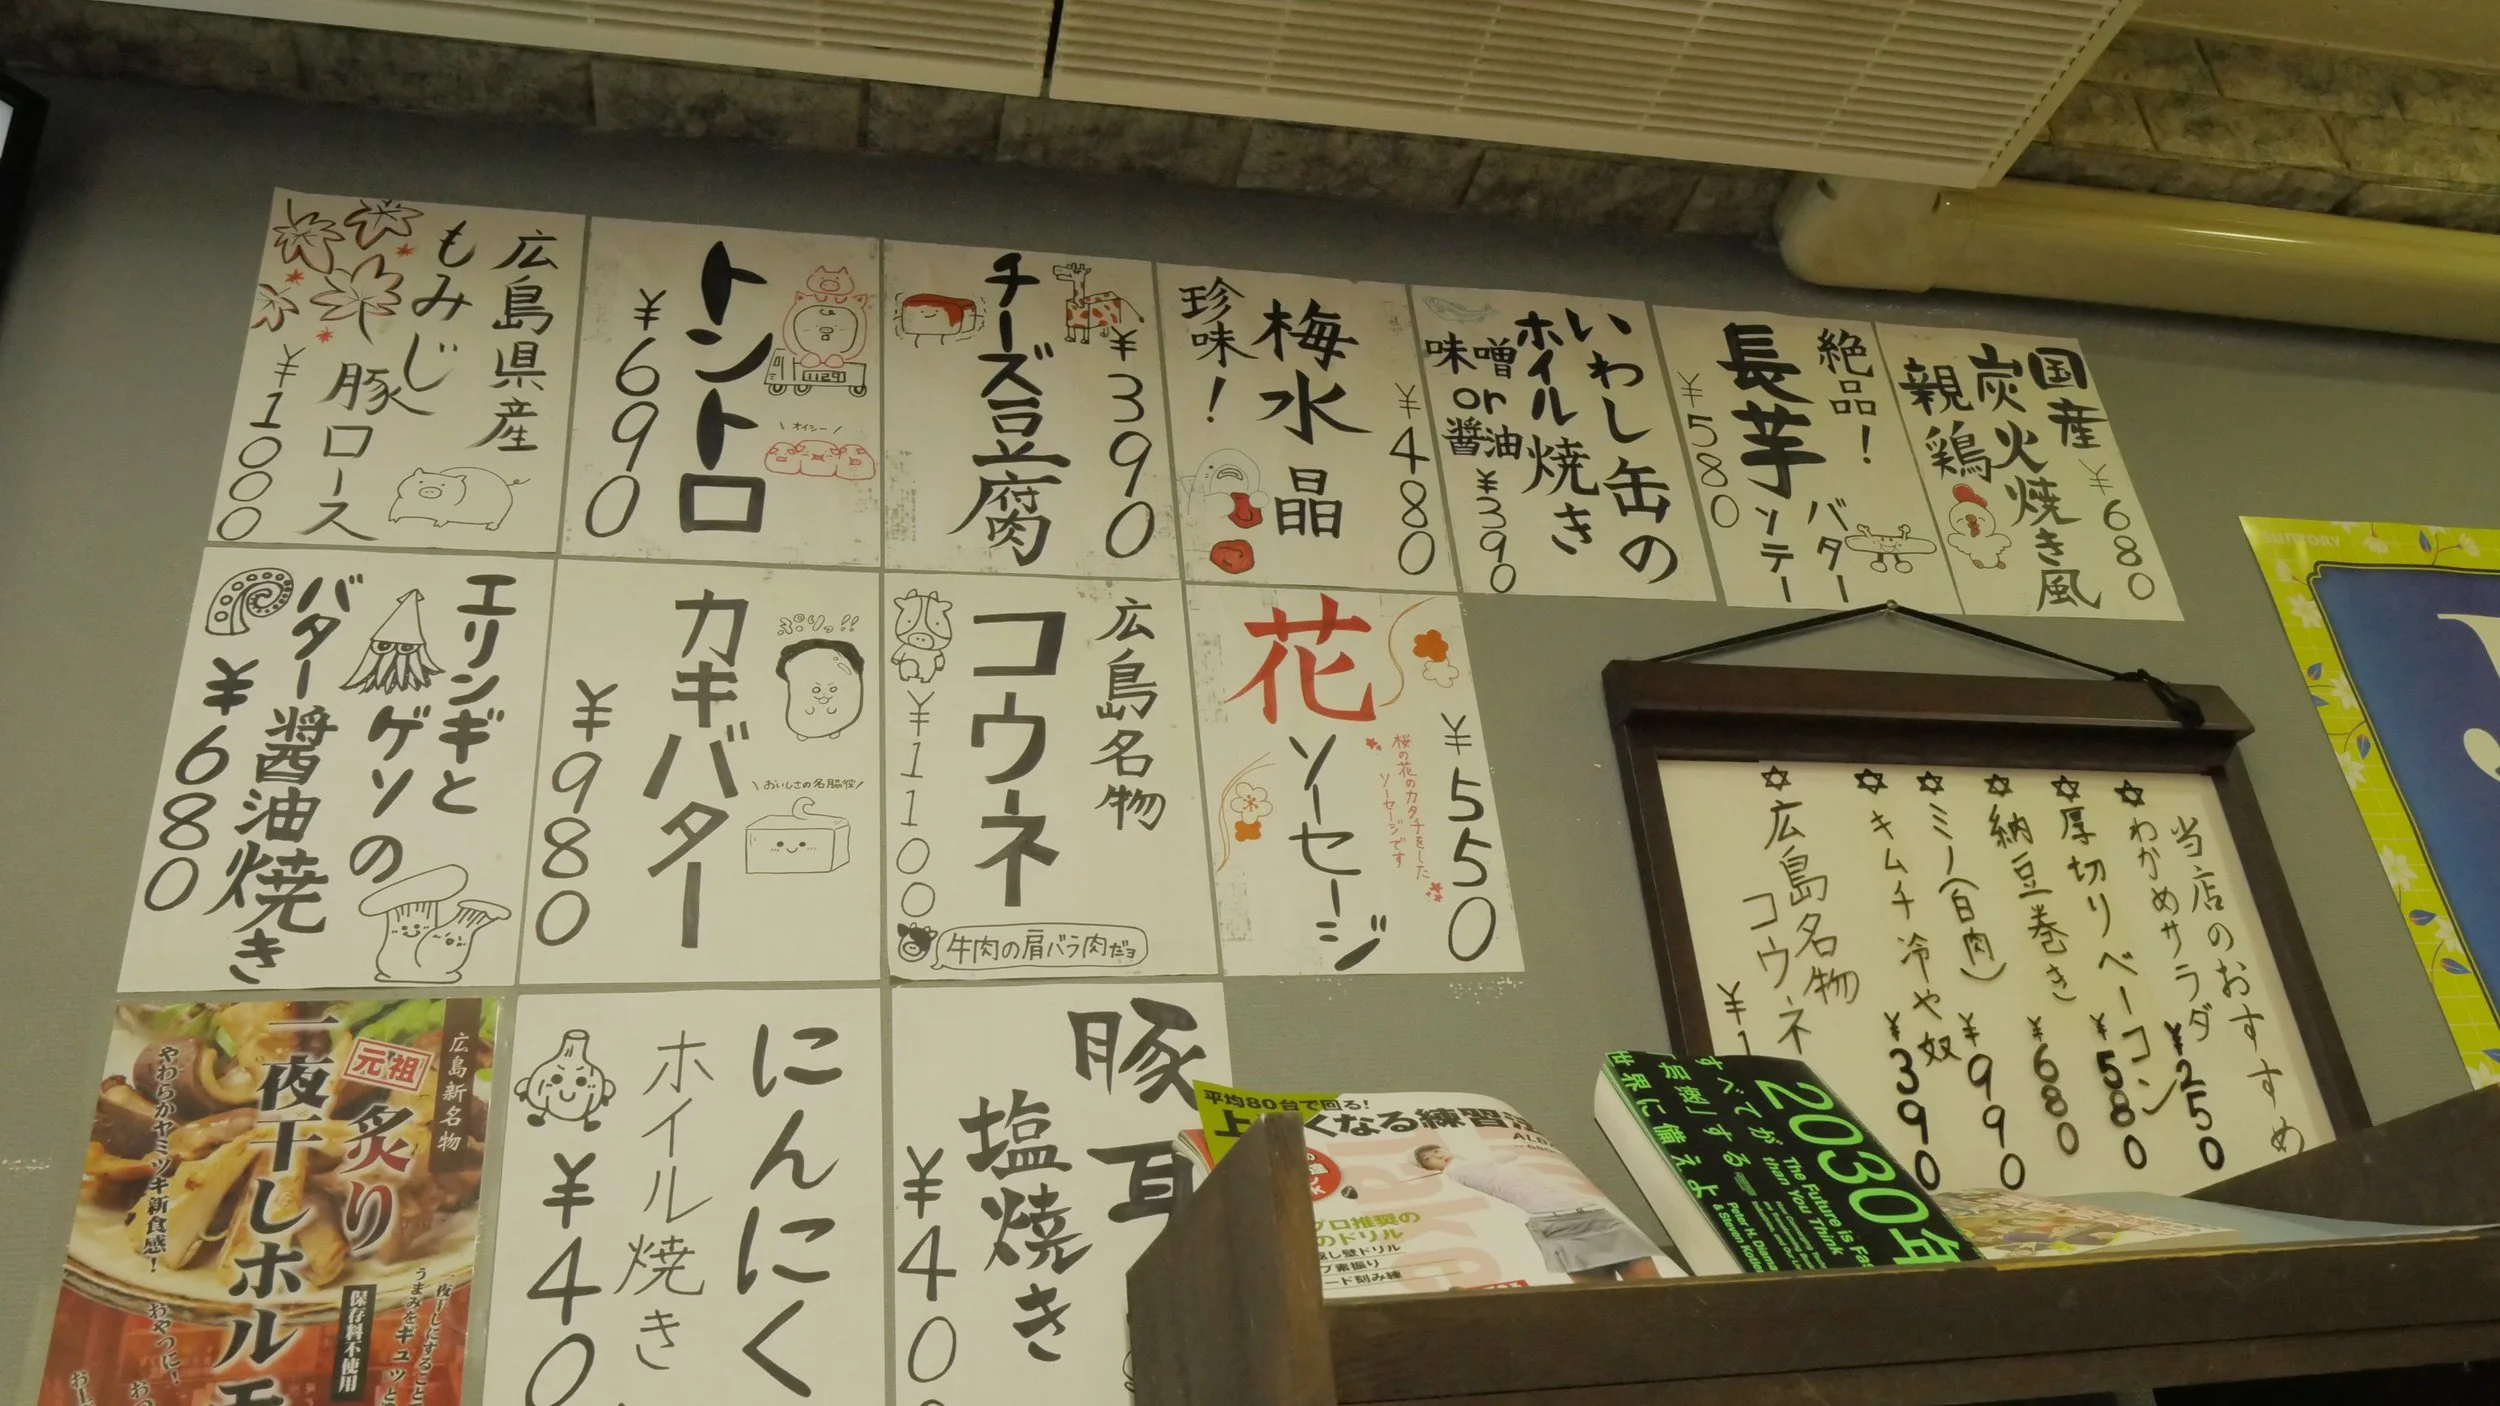 広島県産
もみじ
豚ロース
¥1000
トントロ
¥690
1129
\オイシー/
チーズ豆腐
¥390
珍味!
梅水晶
¥480
いわし缶の
ホイル焼き
味噌or醤油
¥390
絶品!
長芋
バター
ソテー
¥580
国産
炭火焼き風
親鶏
¥680
エリンギと
ゲソの
バター醤油焼き
¥680
カキバター
ぷりっ!!
\おいしさの名脇役/
¥980
広島名物
コウネ
¥1100
牛肉の肩バラ肉だヨ
花
ソーセージ
桜の花のカタチをした
ソーセージです
¥550
広島新名物
元祖
炙り
一夜干しホルモ
やわらかヤミツキ新食感!
おやつに!
保存料不使用
一夜干しにすること
うまみをギュッと
にんにく
ホイル焼き
¥40
豚耳
塩焼き
¥40
当店のおすすめ
わかめサラダ ¥250
厚切りベーコン ¥580
納豆巻き ¥680
ミノ(白肉) ¥990
キムチ冷や奴 ¥390
広島名物
コウネ
¥1
SUNTORY
平均80台で回る!
上 くなる練習
プロ推奨の
のドリル
返し壁ドリル
プ素振り
ード刻み練
2030年
すべてが
「加速」する
世界に備えよ
The Future is Fa
than You Think
Peter H. Diama
& Steven Kotle